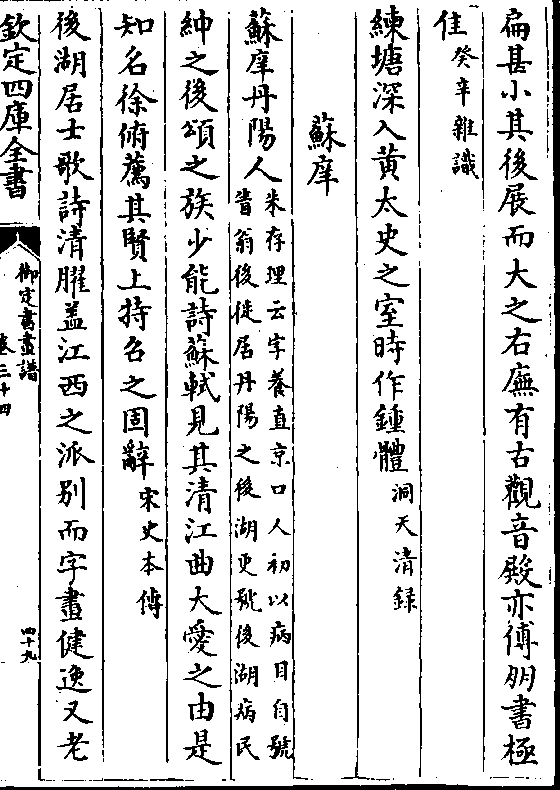 扁甚小其後展而大之右廡有古觀音殿亦傅朋書極
佳癸辛雜識
練塘深入黄太史之室時作鍾體洞天清録
蘇庠
蘇庠丹陽人朱存理云字養直京口人初以病目自號
眚翁後徙居丹陽之後湖更號後湖病民
紳之後頌之族少能詩蘇軾見其清江曲大愛之由是
知名徐俯薦其賢上特名之固辭宋史本傳
後湖居士歌詩清臞蓋江西之派别而字畫健逸又老
欽定四庫全書
御定書畫譜
卷三十四
四十九